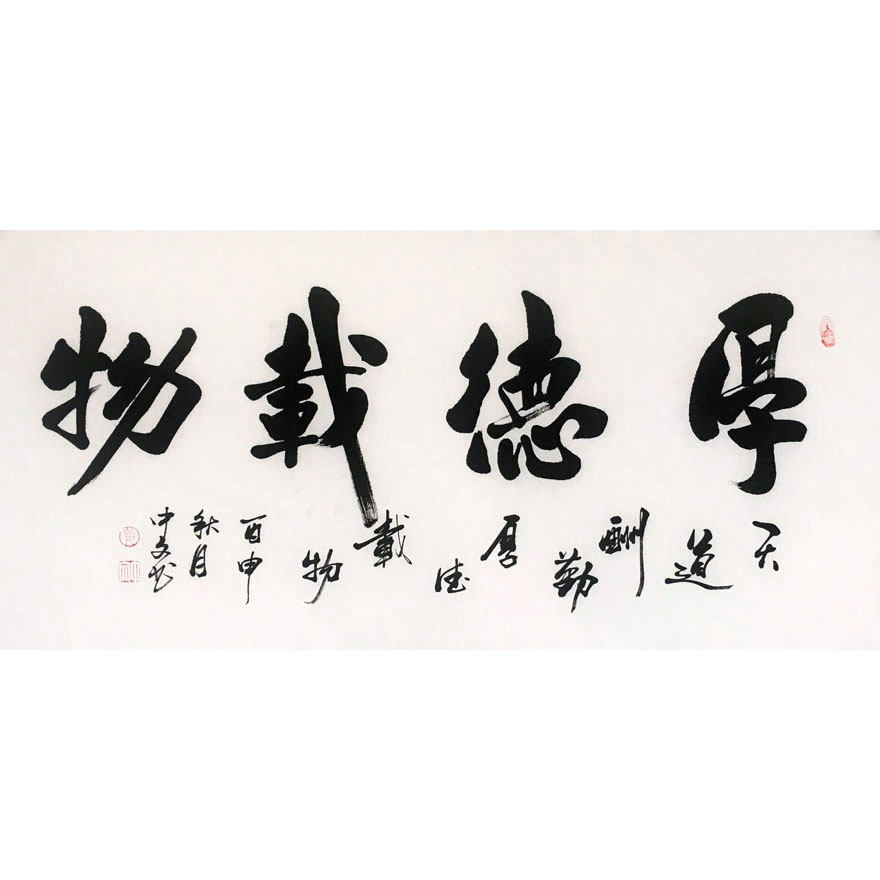 厚德載物
天道酬勤厚德載物
酉申
秋月
中文书